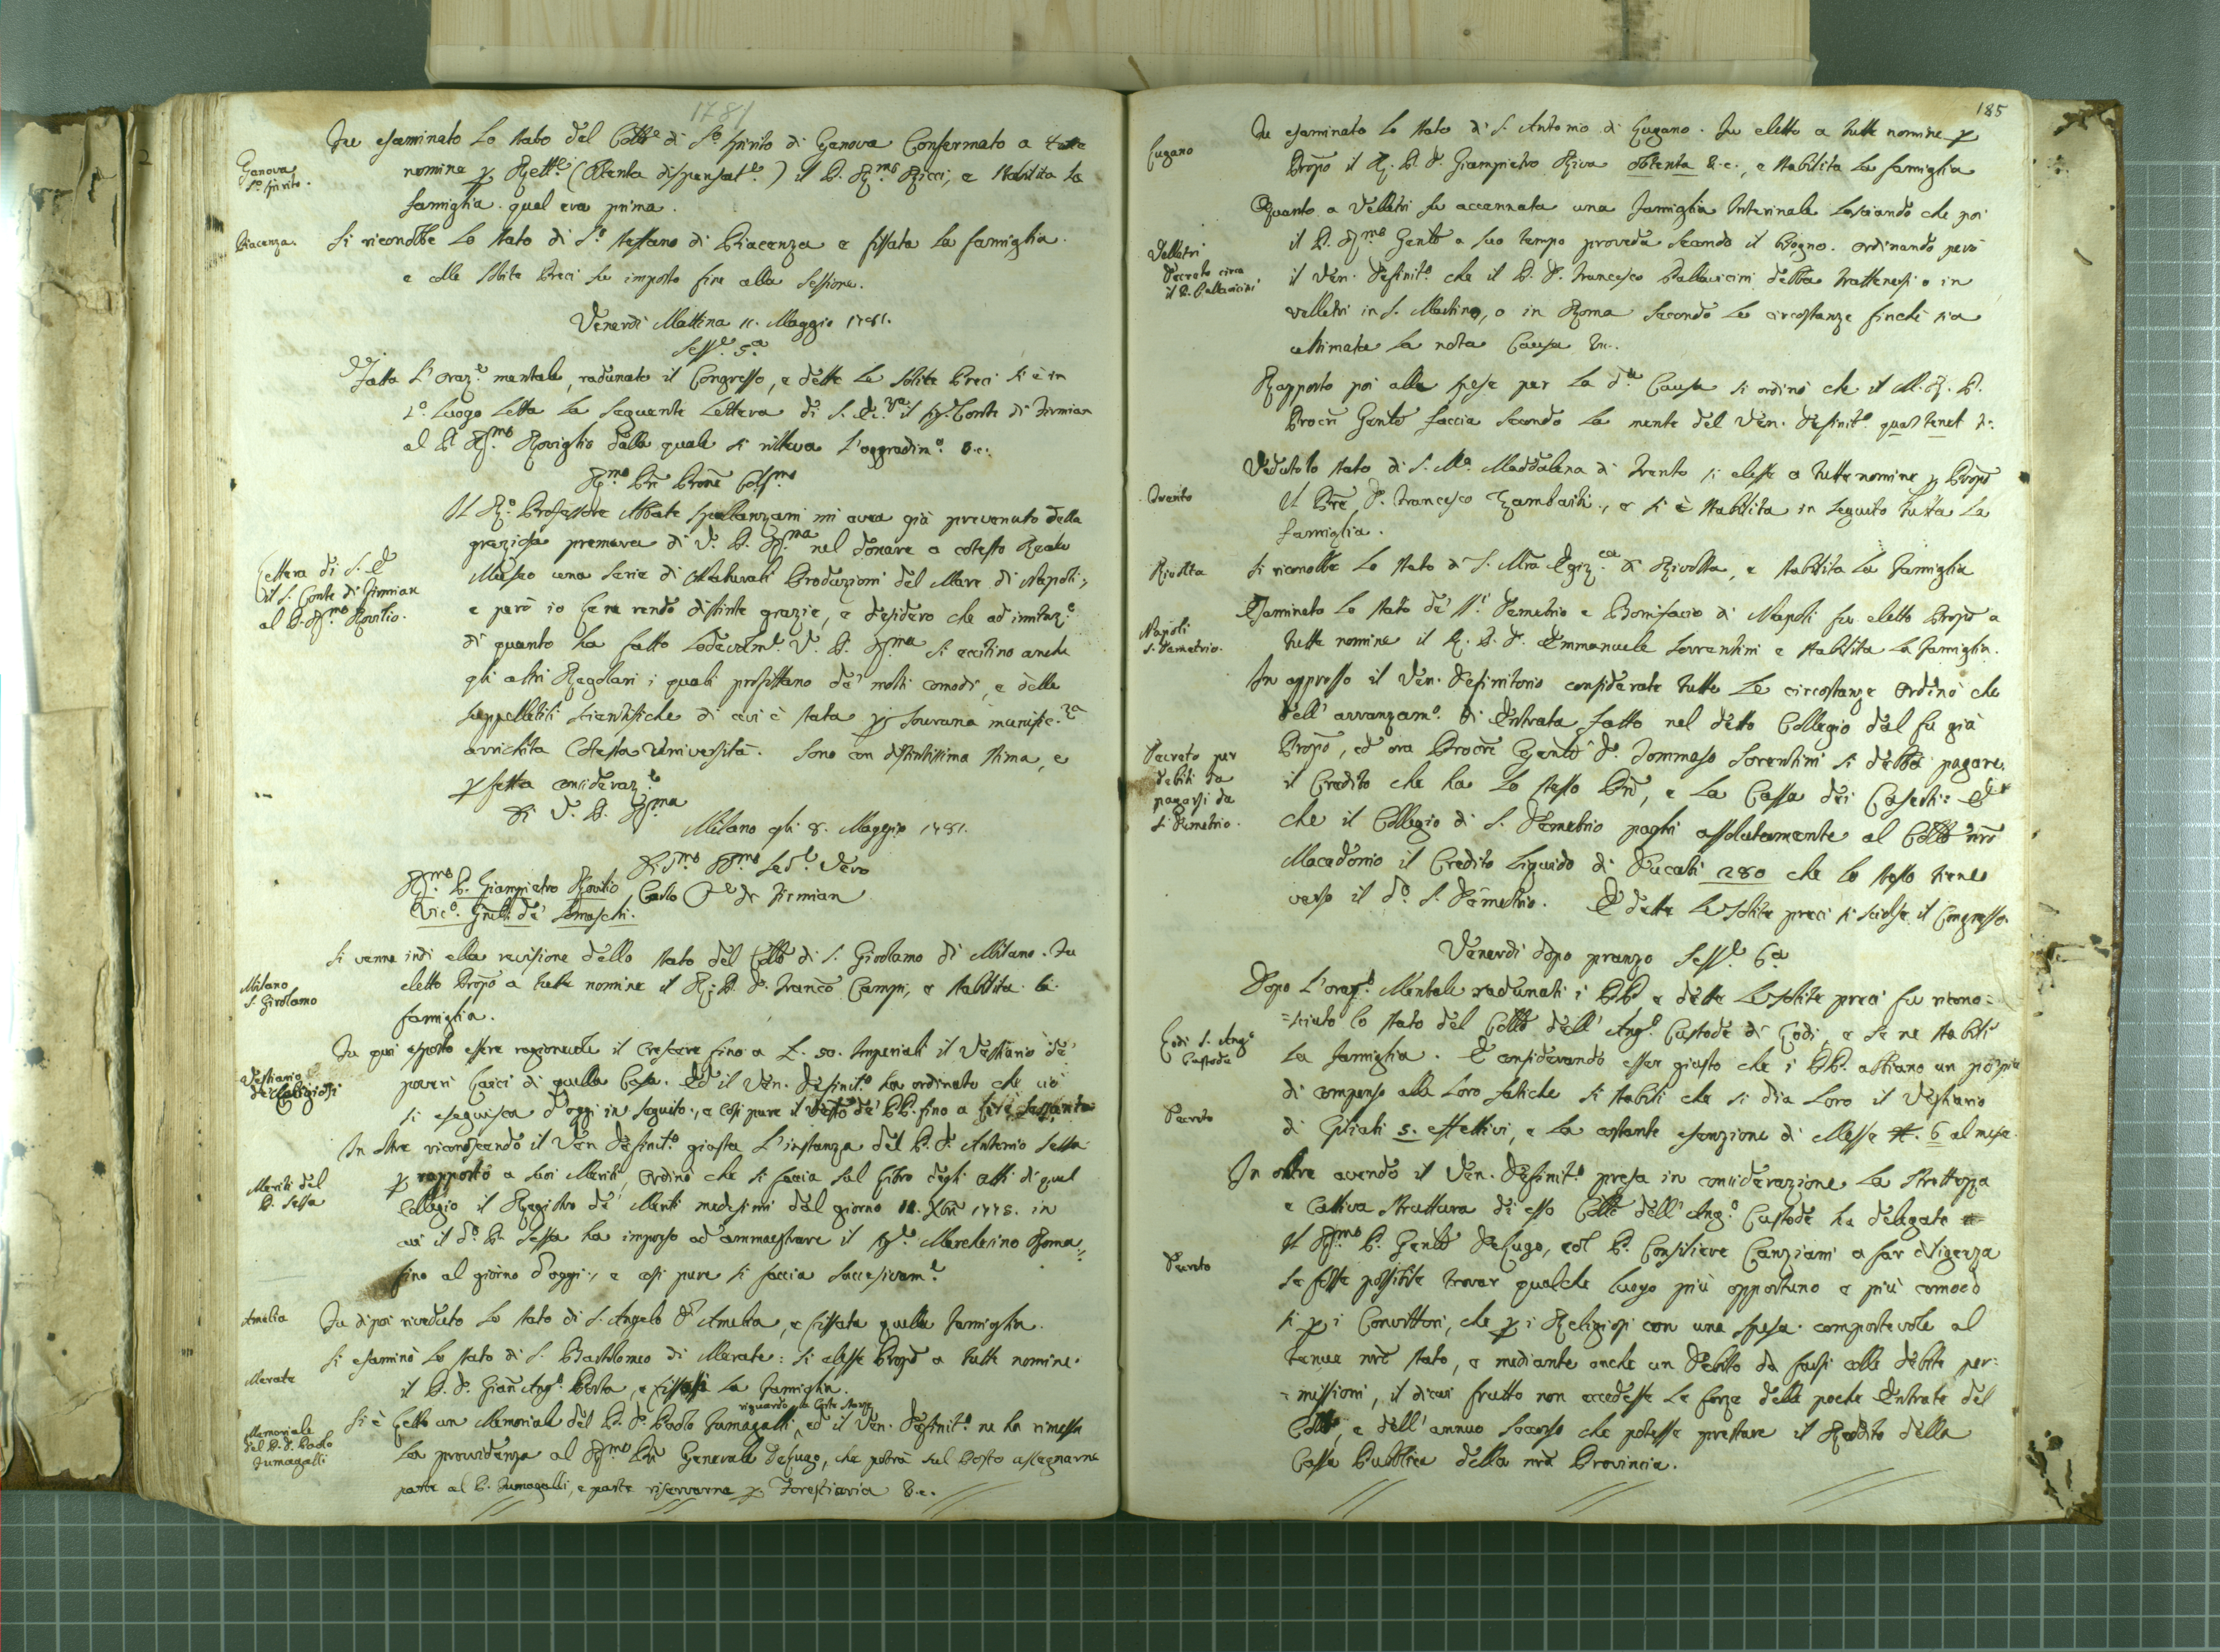 1781
Genova
S.º Spirito.
Fu esaminato lo stato del Coll.º di S.º Spirito di Genova Confermato a tutte
nomine p Rett.e (obtenta dispensat.e) il P. Rmo Ricci, e stabilita la
famiglia qual era prima.
Piacenza.
Si riconobbe lo stato di S.º Steffano di Piacenza e fissata la famiglia.
e colle solite Preci fu imposto fine alla Sessione.
Venerdi Mattina 11. Maggio 1781.
Sess.e 5.a
Fatta l'oraz.e mentale, radunato il Congresso, e dette le solite Preci si è in
1.º luogo letta la seguente lettera di S. Ec.za il Sig.r Conte di Firmian
al P. Rmo Roviglio dalla quale si rilleva l'aggradim.º &c.
Rmo Pre Prone Colmo
Il R.º Professore Abbate Spallanzani mi avea già prevenuto della
graziosa premura di V. P. Rma nel donare a cotesto Reale
Museo una serie di Naturali Produzioni del Mare di Napoli,
Lettera di S. E
il S. Conte di Firmian
al P. Rmo Rovilio.
e però io Le ne rendo distinte grazie, e desidero che ad imitaz.e
di quanto ha fatto lodevolm.e V. P. Rma si eccitino anche
gli altri Regolari i quali profittano de' molti comodi, e delle
suppelletili scientifiche di cui è stata p Sovrana munific.za
arrichita cotesta Università. Sono con distintissima stima, e
pfetta consideraz.e
Di V. P. Rma
Milano gli 8. Maggio 1781.
Dmo Obmo Sed.e Vero
Rmo P. Giampietro Rovilio Carlo C.e de Firmian
Vic.º Gnle de' Somaschi.
Milano
S. Girolamo
Si venne indi alla revisione dello stato del Collo di S. Girolamo di Milano. Fu
eletto Propo a tutte nomine il R. P. D. Franco Campi, e stabilita la
famiglia.
Vestiario
de' Religiosi
Fu poi esposto essere ragionevole il crescere fino a L. 50. Imperiali il Vestiario de'
poveri Laici di quella Casa. Ed il Ven. Definit.º ha ordinato che ciò
si eseguisca d'oggi in seguito, e così pure il Vesto de' PP. fino a lire sessanta
Meriti del
P. Sessa
In oltre riconoscendo il Ven Definit.º giusta l'instanza del P. D. Antonio Sessa
p rapporto a suoi Meriti, ordinò che si faccia sul Libro degli Atti di quel
Collegio il Registro de' Meriti medesimi dal giorno 11. Xbre 1778. in
cui il d.º P. Sessa ha impreso ad ammaestrare il Sig.r Marchesino Roma
fino al giorno d'oggi, e così pure si faccia successivam.e
Amelia
Fu dipoi riveduto lo stato di S. Angelo d'Amelia, e fissata quella famiglia.
Merate
Si esaminò lo stato di S. Bartolomeo di Merate: si elesse Propo a tutte nomine
il P. D. Gian Ang.º Porta, e fissossi la famiglia.
Memoriale
del P. D. Paolo
Fumagalli
riguardo a Corte Nuova
Si è letto un Memoriale del P. D. Paolo Fumagalli, ed il Ven. Definit.º ne ha rimessa
la providenza al Rmo Pre Generale DeLugo, che potrà sul Posto assegnarne
parte al P. Fumagalli, e parte riservarne p Forestiaria &c.
185
Lugano
Fu esaminato lo stato di S. Antonio di Lugano. Fu eletto a tutte nomine p
Propo il R. P. D. Giampietro Riva obtenta &c., e stabilita la famiglia
Velletri
Decreto circa
il P. Pallavicini
Quanto a Velletri fu accennata una famiglia Interinale lasciando che poi
il P. Rmo Genle a suo tempo proveda secondo il bisogno. Ordinando però
il Ven. Definit.º che il P. D. Francesco Pallavicini debba trattenersi o in
Velletri in S. Martino, o in Roma secondo le circostanze finchè sia
ultimata la nota Causa &c.
Rapporto poi alle spese per la d.a Causa si ordinò che il M. R. P.
Procre Genle faccia secondo la mente del Ven. Definit.º quas tenet &c.
Trento
Veduto lo stato di S. Ma. Maddalena di Trento si elesse a tutte nomine p Propo
il Pre D. Francesco Zambaiti, e si è stabilita in seguito tutta la
famiglia.
Rivolta
Si riconobbe lo stato di S. Mria Egiz.ca di Rivolta, e stabilita la famiglia
Napoli
S. Demetrio.
Esaminato lo stato de' SS.i Demetrio e Bonifacio di Napoli fu eletto Propo a
tutte nomine il R. P. D. Emmanuele Sorrentini e stabilita la famiglia.
Decreto per
debiti da
pagarsi da
S. Demetrio.
In appresso il Ven. Definitorio considerate tutte le circostanze ordinò che
dell' avvanzam.º di Entrata fatto nel detto Collegio dal fu già
Propo, ed ora Procre Genle D. Tommaso Sorentini si debba pagare
il Credito che ha lo stesso Pre, e la Cassa dei Caserti: Ed
che il Collegio di S. Demetrio paghi assolutamente al Collo nro
Macedonio il Credito liquido di Ducati 280 che lo stesso tiene
verso il d.º S. Demetrio. E dette le solite preci si sciolse il Congresso.
Venerdi dopo pranzo Sess.e 6.a
Lodi S. Ang.º
Custode
Dopo l'oraz.e Mentale radunati i PP. e dette le solite preci fu ricono=
=sciuto lo stato del Collo dell' Ang.º Custode di Lodi, e se ne stabilì
la famiglia. E considerando esser giusto che i PP. abbiano un pò più
di compenso alle loro fatiche si stabilì che si dia loro il Vestiario
Decreto
di Giliati 5. effettivi, e la costante esenzione di Messe N. 6 al mese.
In oltre avendo il Ven. Definit.º presa in considerazione la strettezza
e cattiva struttura di esso Collo dell' Ang.º Custode ha delegato
Decreto
il Rmo P. Genle DeLugo, col P. Consiliere Canziani a far diligenza
se fosse possibile trovar qualche luogo più opportuno e più comodo
sì p i Convittori, che p i Religiosi con una spesa comportevole al
tenue nro stato, e mediante anche un Debito da farsi colle debite per=
=missioni, il di cui frutto non eccedesse le forze delle poche Entrate del
Collo, e dell' annuo soccorso che potesse prestare il Reddito della
Cassa Pubblica della nra Provincia.